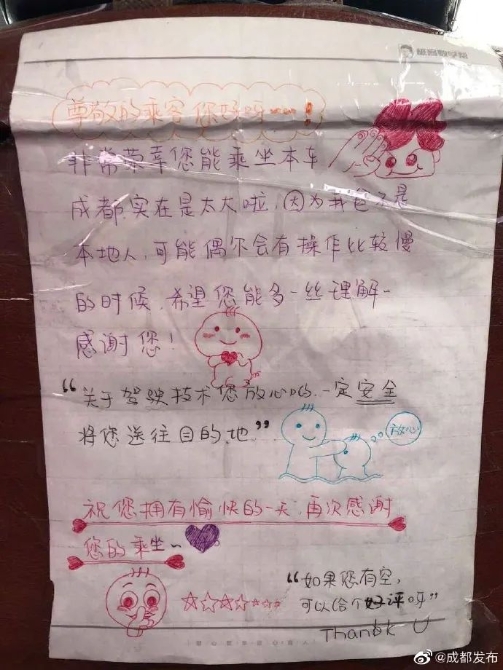 尊敬的乘客您好呀~~!
非常荣幸您能乘坐本车
成都实在是太大啦,因为我爸不是
本地人,可能偶尔会有操作比较慢
的时候,希望您能多一丝理解~
感谢您!
“关于驾驶技术您放心哟,一定安全
将您送往目的地”
放心
祝您拥有愉快的一天,再次感谢
您的乘坐~
“如果您有空,
可以给个好评呀”
Thank U
@成都发布